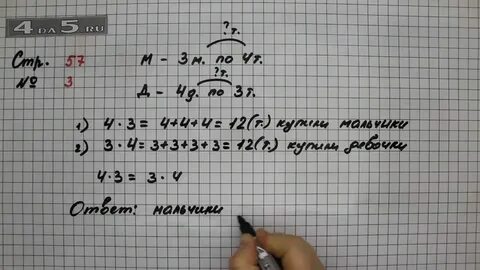 4DA5.RU
Стр. 57
№ 3
?т.
М - 3м. по 4т.
?т.
Д - 4д. по 3т.
1) 4·3 = 4+4+4 = 12(т.) купили мальчики
2) 3·4 = 3+3+3+3 = 12(т.) купили девочки
4·3 = 3·4
Ответ: мальчики